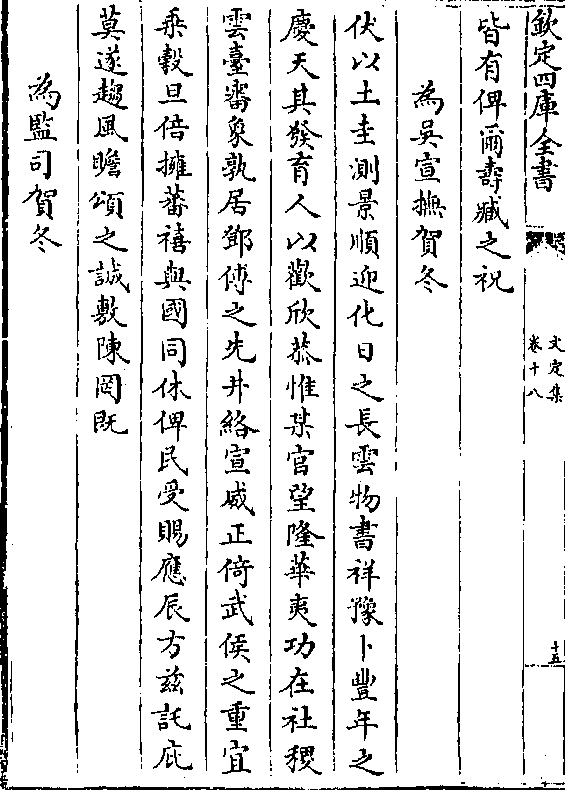 欽定四庫全書
皆有俾爾壽臧之祝
為吳宣撫賀冬
伏以土圭測景順迎化日之長雲物書祥豫卜豐年之
慶天其發育人以歡欣恭惟某官望隆華夷功在社稷
雲臺審象孰居鄧傅之先井絡宣威正倚武侯之重宜
乘穀旦倍擁蕃禧與國同休俾民受賜應辰方茲託庇
莫遂趨風瞻頌之誠敷陳罔既
為監司賀冬
文定集
卷十八
十五